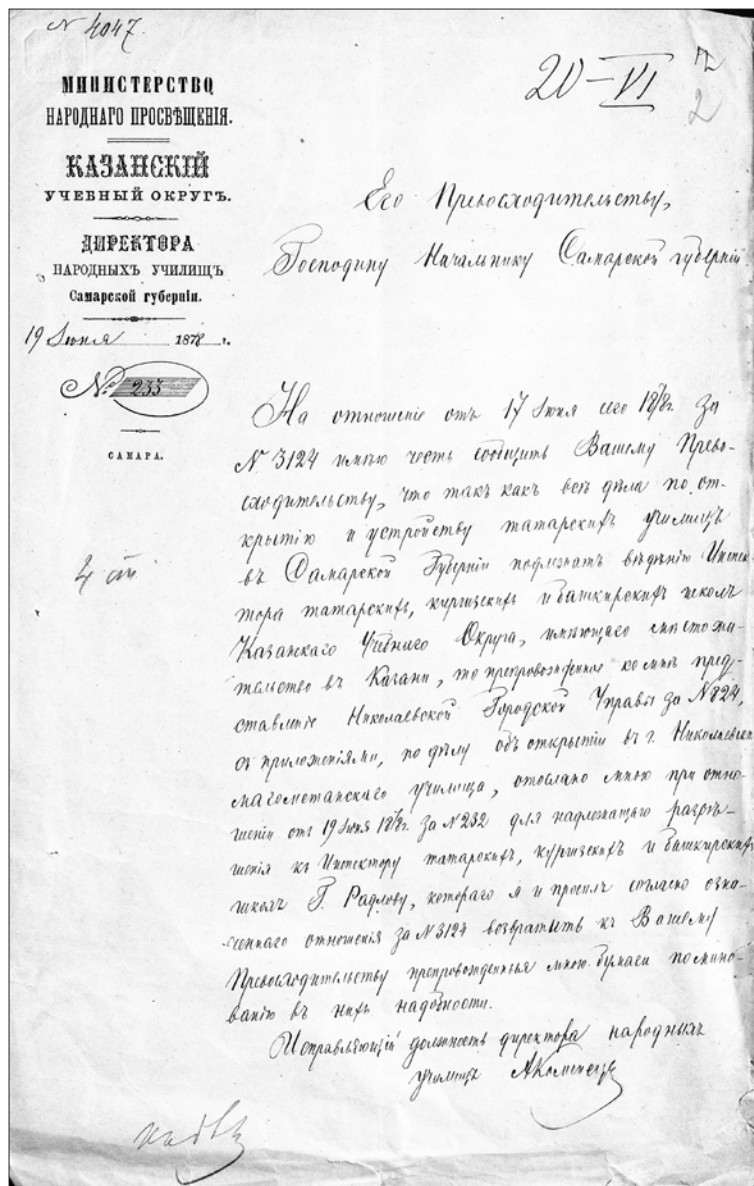 № 4047.
20–VI
2
МИНИСТЕРСТВО
НАРОДНАГО ПРОСВѢЩЕНІЯ.
КАЗАНСКІЙ
УЧЕБНЫЙ ОКРУГЪ.
ДИРЕКТОРА
НАРОДНЫХЪ УЧИЛИЩЪ
Самарской губерніи.
19 Іюня 1878 г.
№ 233
САМАРА.
Его Превосходительству,
Господину Начальнику Самарской губерніи
На отношеніе отъ 17 Іюня сего 1878г. за
№ 3124 имѣю честь сообщить Вашему Прево-
сходительству, что такъ какъ всѣ дѣла по от-
крытію и устройству татарскихъ училищъ
въ Самарской Губерніи подлежатъ вѣдѣнію Инспек-
тора татарскихъ, киргизскихъ и башкирскихъ школъ
Казанскаго Учебнаго Округа, имѣющаго мѣстожи-
тельство въ Казани, то препровожденное ко мнѣ пред-
ставленіе Николаевской Городской Управы за №824,
съ приложеніями, по дѣлу объ открытіи въ г. Николаевскѣ
магометанскаго училища, отослано мною при отно-
шеніи отъ 19 Іюня 1878г. за №232 для надлежащаго разрѣ-
шенія къ Инспектору татарскихъ, киргизскихъ и башкирскихъ
школъ Г. Радлову, котораго я и просилъ согласно озна-
ченнаго отношенія за №3124 возвратить къ Вашему
Превосходительству препровожденныя мною бумаги по мино-
ваніи въ нихъ надобности.
Исправляющій должность директора народныхъ
училищъ